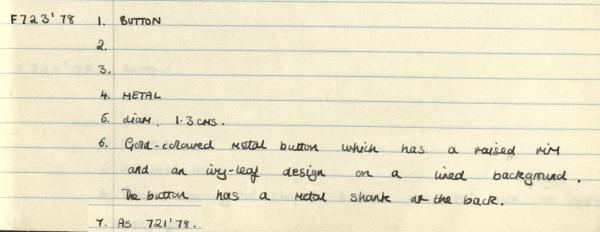 F723'78 1. BUTTON
2.
3.
4. METAL
5. diam. 1.3 cms.
6. Gold-coloured metal button which has a raised rim
and an ivy-leaf design on a lined background.
The button has a metal shank at the back.
7. As 721'78.